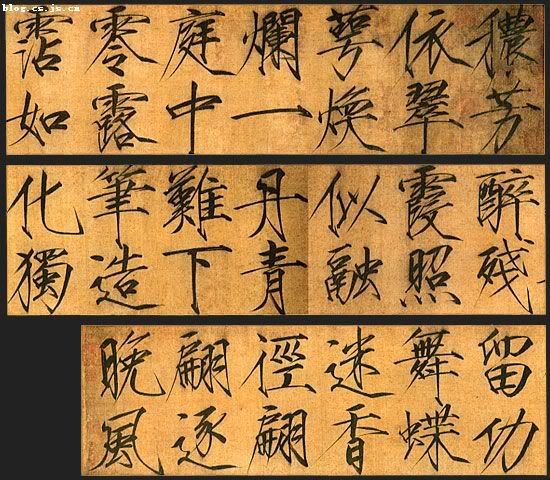 blog.cs.js.cn
穠芳
依翠
萼煥
爛一
庭中
零露
霑如
醉殘
霞照
似融
丹青
難下
筆造
化獨
留功
舞蝶
迷香
徑翩
翩逐
晚風